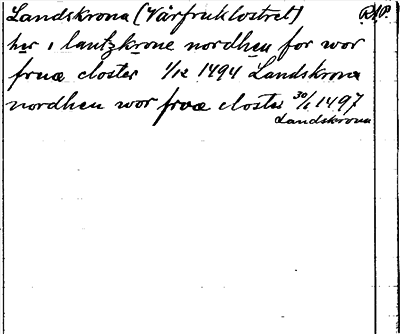 Landskrona (Vårfruklostret) RAP.
her i lantzkrone nordhen for wor
fruæ closter 1/12 1494 Landskrona
nordhen wor fruæ closter 30/1 1497
Landskrona